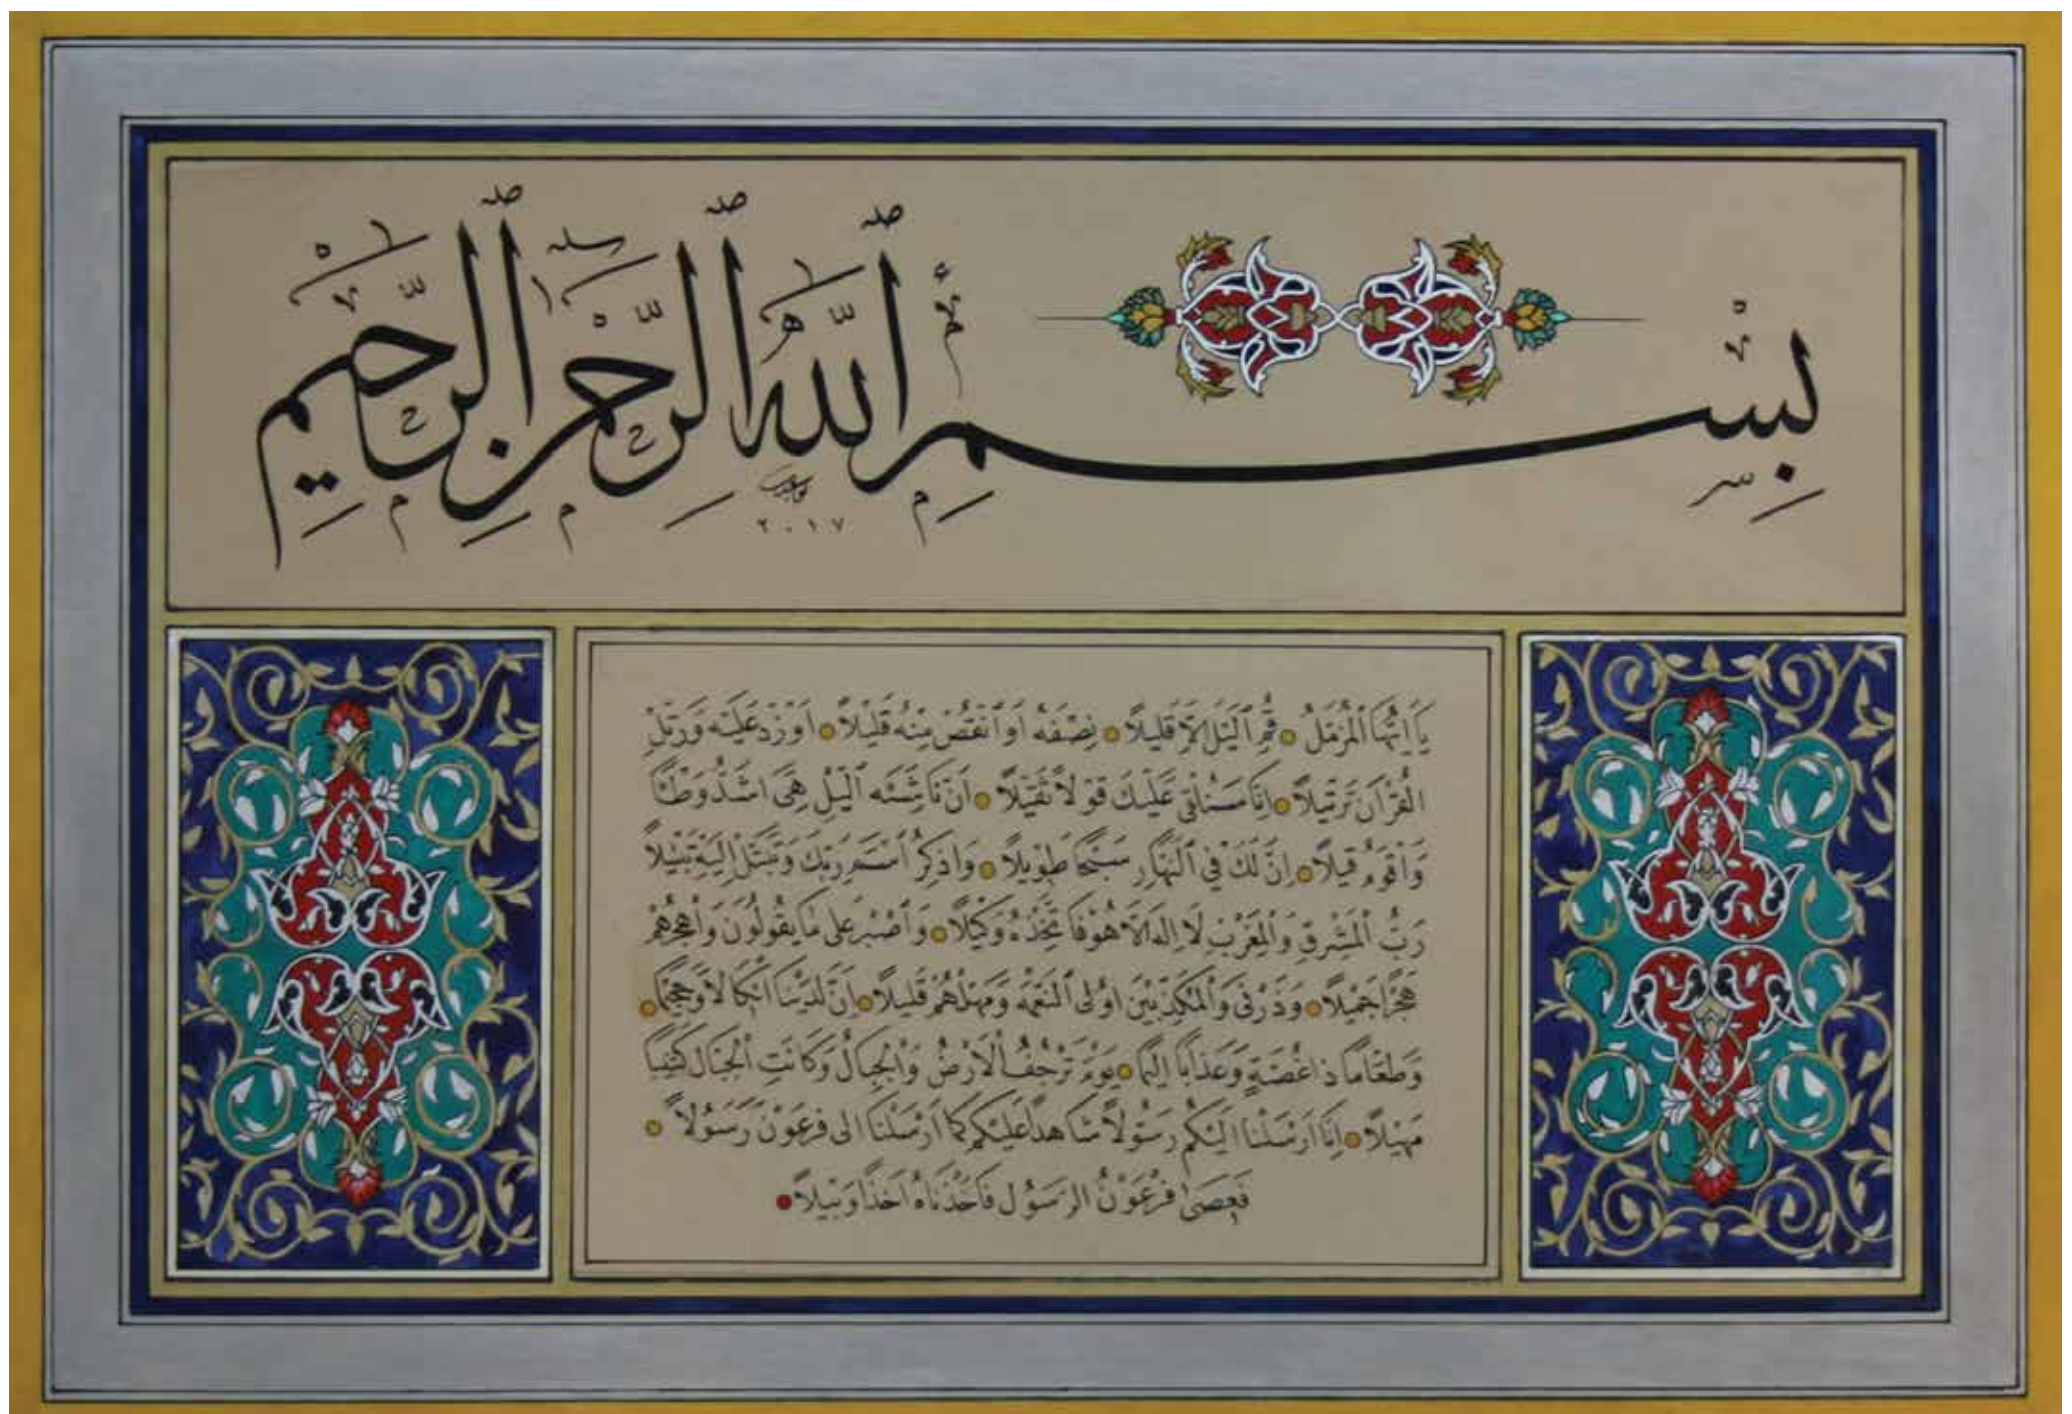 بِسْمِ ٱللَّهِ ٱلرَّحْمٰنِ ٱلرَّحِيمِ
٢٠١٧
يَا اَيُّهَا ٱلْمُزَّمِّلُ قُمِ ٱلَّيْلَ اِلَّا قَلِيلاً نِصْفَهُ اَوِ ٱنْقُصْ مِنْهُ قَلِيْلاً اَوْ زِدْ عَلَيْهِ وَرَتِّلِ
الْقُرْاٰنَ تَرْتِيْلاً اِنَّا سَنُلْقِى عَلَيْكَ قَوْلاً ثَقِيْلاً اِنَّ نَاشِئَةَ ٱلَّيْلِ هِىَ اَشَدُّ وَطْئًا
وَاَقْوَمُ قِيلاً اِنَّ لَكَ فِي ٱلنَّهَارِ سَبْحًا طَوِيلاً وَاذْكُرِ ٱسْمَ رَبِّكَ وَتَبَتَّلْ اِلَيْهِ تَبْتِيْلاً
رَبُّ ٱلْمَشْرِقِ وَٱلْمَغْرِبِ لَا اِلٰهَ اِلَّا هُوَ فَاتَّخِذْهُ وَكِيْلاً وَٱصْبِرْ عَلٰى مَا يَقُولُونَ وَٱهْجُرْهُمْ
هَجْرًا جَمِيْلاً وَذَرْنِى وَٱلْمُكَذِّبِيْنَ اُولِى ٱلنَّعْمَةِ وَمَهِّلْهُمْ قَلِيلاً اِنَّ لَدَيْنَا اَنْكَالاً وَجَحِيْمًا
وَطَعَامًا ذَا غُصَّةٍ وَعَذَابًا اَلِيْمًا يَوْمَ تَرْجُفُ ٱلْاَرْضُ وَٱلْجِبَالُ وَكَانَتِ ٱلْجِبَالُ كَثِيْبًا
مَهِيْلاً اِنَّا اَرْسَلْنَا اِلَيْكُمْ رَسُولاً شَاهِدًا عَلَيْكُمْ كَمَا اَرْسَلْنَا اِلٰى فِرْعَوْنَ رَسُولاً
فَعَصٰى فِرْعَوْنُ الرَّسُولَ فَاَخَذْنَاهُ اَخْذًا وَبِيلاً